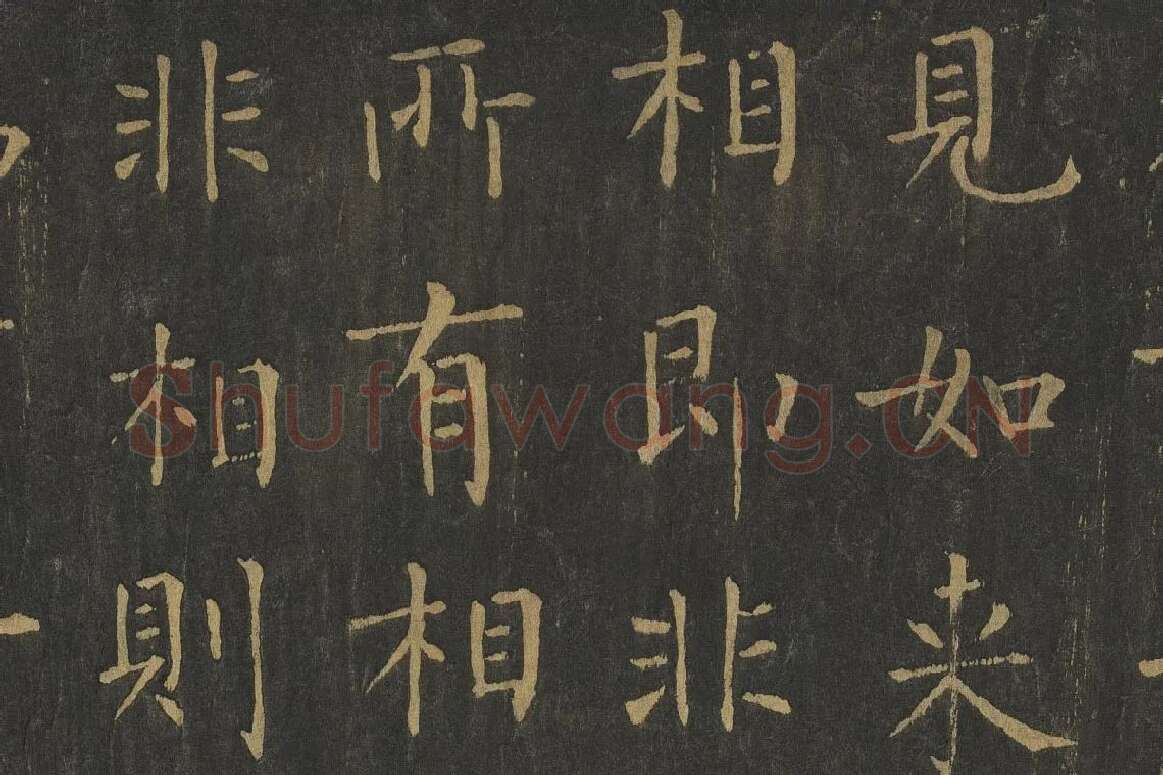 見如来
相即非
所有相
非相則
Shufawang.CN